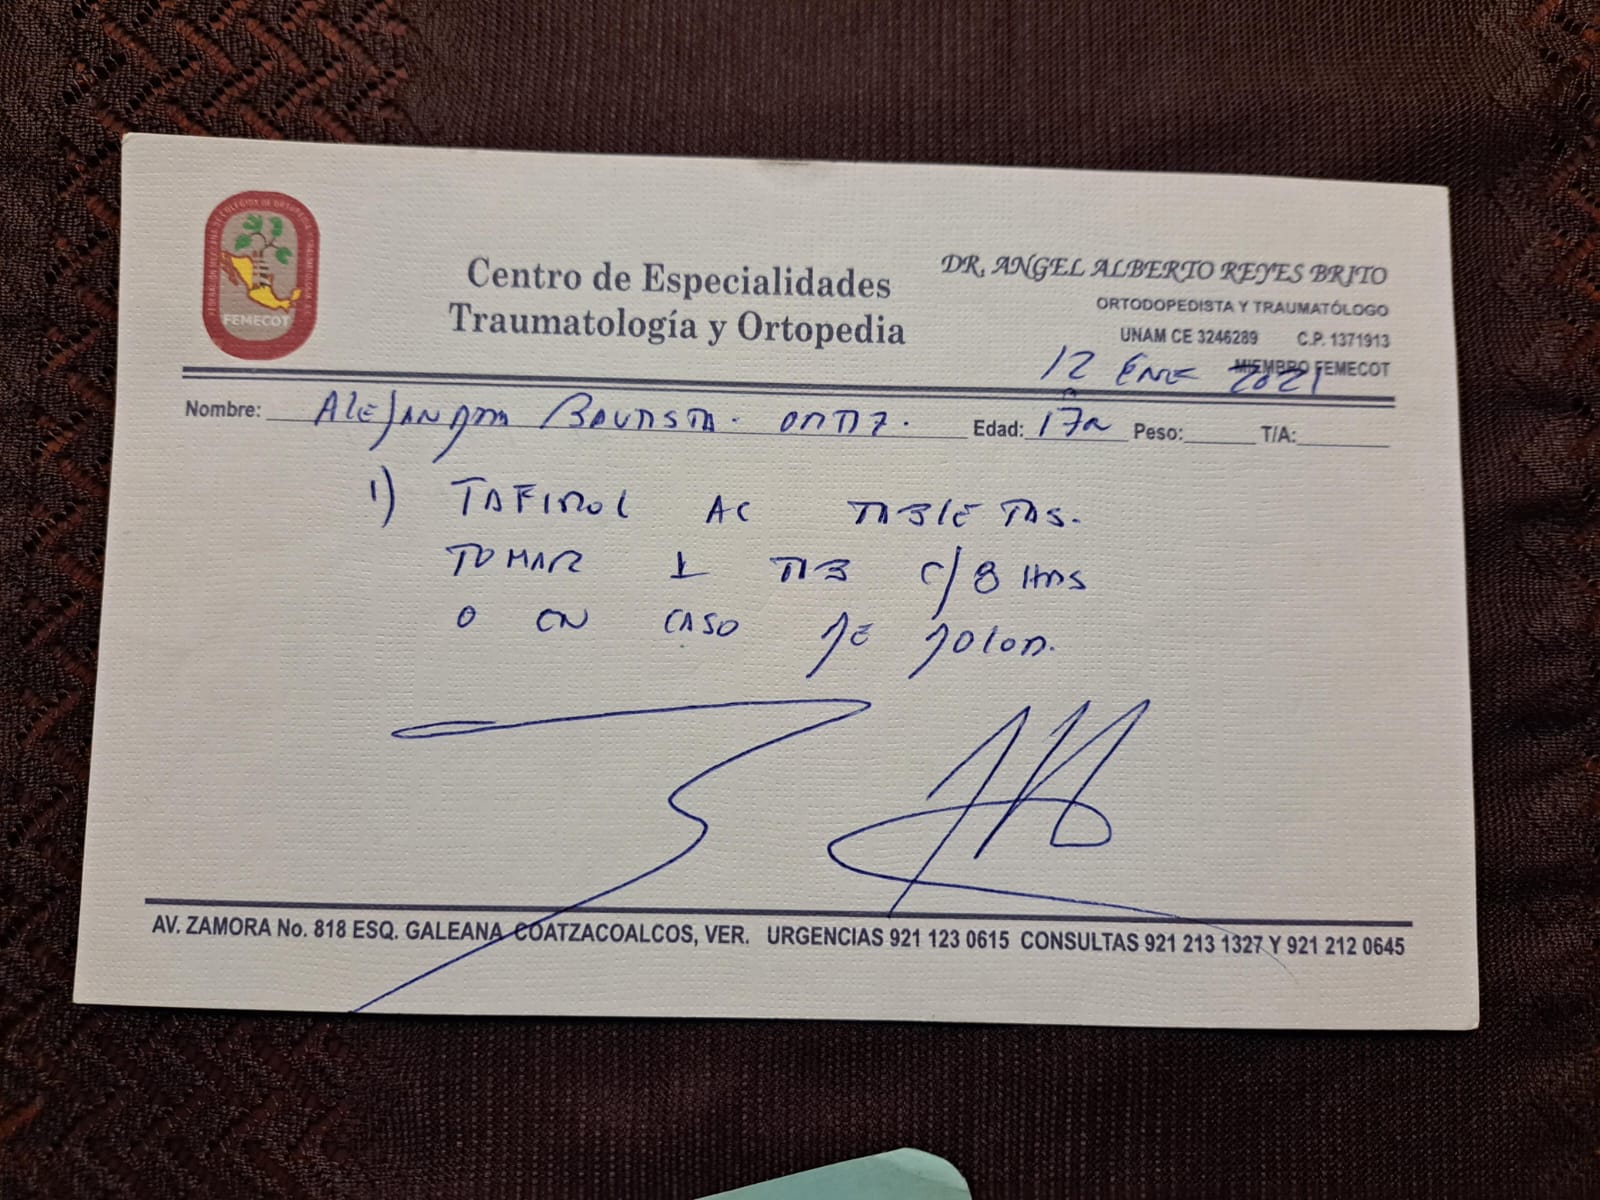 FEDERACIÓN MEXICANA DE COLEGIOS DE ORTOPEDIA Y TRAUMATOLOGÍA, A.C.
FEMECOT
Centro de Especialidades
Traumatología y Ortopedia
DR. ANGEL ALBERTO REYES BRITO
ORTODOPEDISTA Y TRAUMATÓLOGO
UNAM CE 3246289 C.P. 1371913
MIEMBRO FEMECOT
12 ENE 2021
Nombre: ALEJANDRA BAUTISTA ORTIZ. Edad: 17a Peso: T/A:
1) TAFIROL AC TABLETAS.
TOMAR 1 TAB C/8 HRS
O EN CASO DE DOLOR.
AV. ZAMORA No. 818 ESQ. GALEANA COATZACOALCOS, VER. URGENCIAS 921 123 0615 CONSULTAS 921 213 1327 Y 921 212 0645